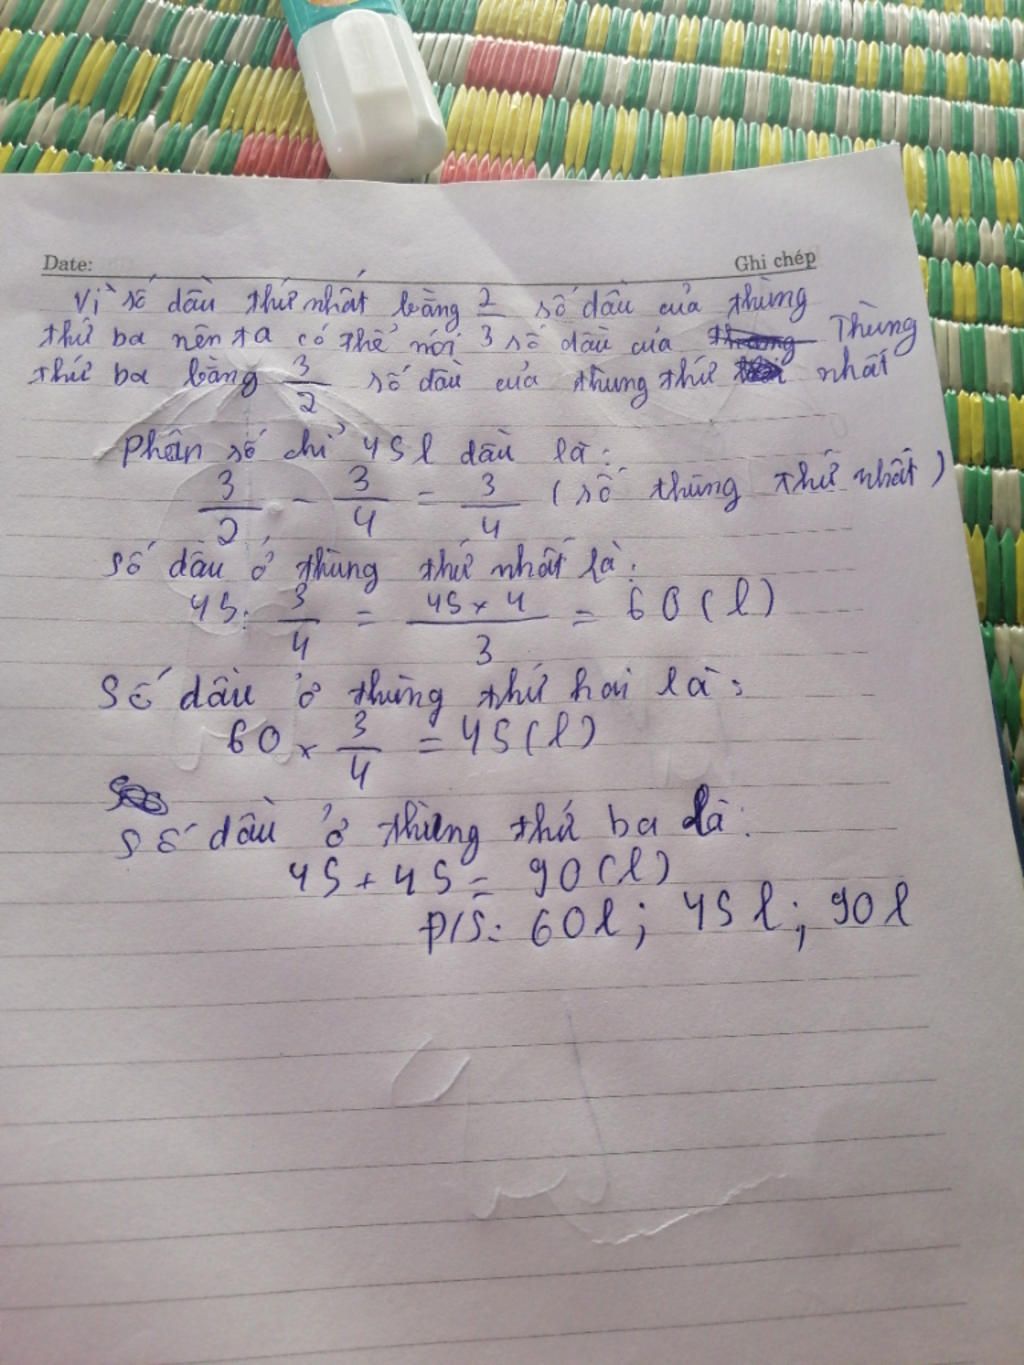 Date: Ghi chép
Vì số dầu thứ nhất bằng 2/3 số dầu của thùng
thứ ba nên ta có thể nói số dầu của Thùng
thứ ba bằng 3/2 số dầu của thùng thứ nhất
Phân số chỉ 45l dầu là:
3/2 - 3/4 = 3/4 (số thùng thứ nhất)
Số dầu ở thùng thứ nhất là:
45: 3/4 = 45 x 4/3 = 60 (l)
Số dầu ở thùng thứ hai là:
60 x 3/4 = 45 (l)
Số dầu ở thùng thứ ba là:
45 + 45 = 90 (l)
Đ/S: 60l; 45l; 90l